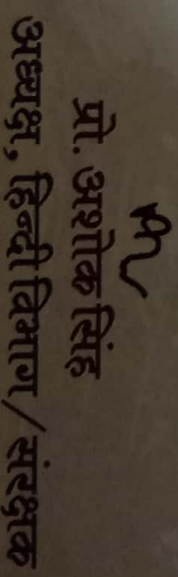 प्रो. अशोक सिंह
अध्यक्ष, हिन्दी विभाग/संरक्षक